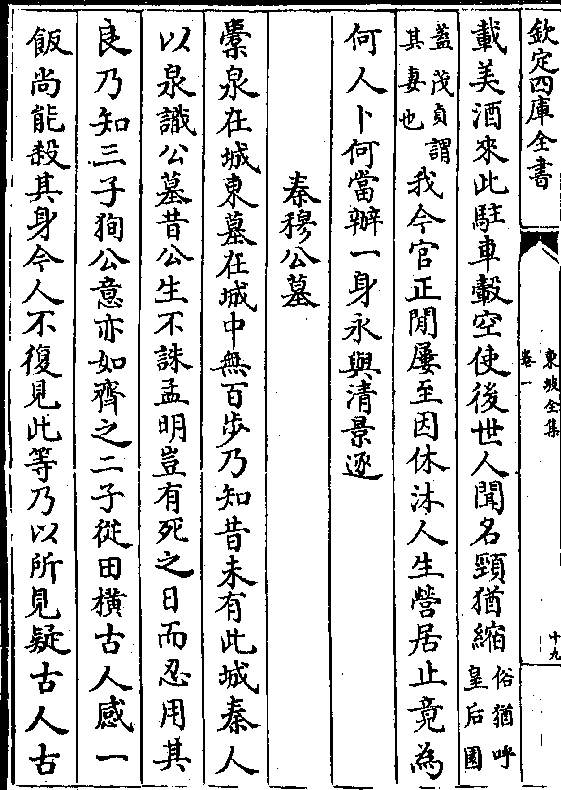 欽定四庫全書
東坡全集
卷一
十九
載美酒來此駐車轂空使後世人聞名頸猶縮俗猶呼皇后園
蓋茂貞謂其妻也我今官正閒屢至因休沐人生營居止竟為
何人卜何當辦一身永與清景逐
秦穆公墓
橐泉在城東墓在城中無百步乃知昔未有此城秦人
以泉識公墓昔公生不誅孟明豈有死之日而忍用其
良乃知三子狥公意亦如齊之二子從田橫古人感一
飯尚能殺其身今人不復見此等乃以所見疑古人古